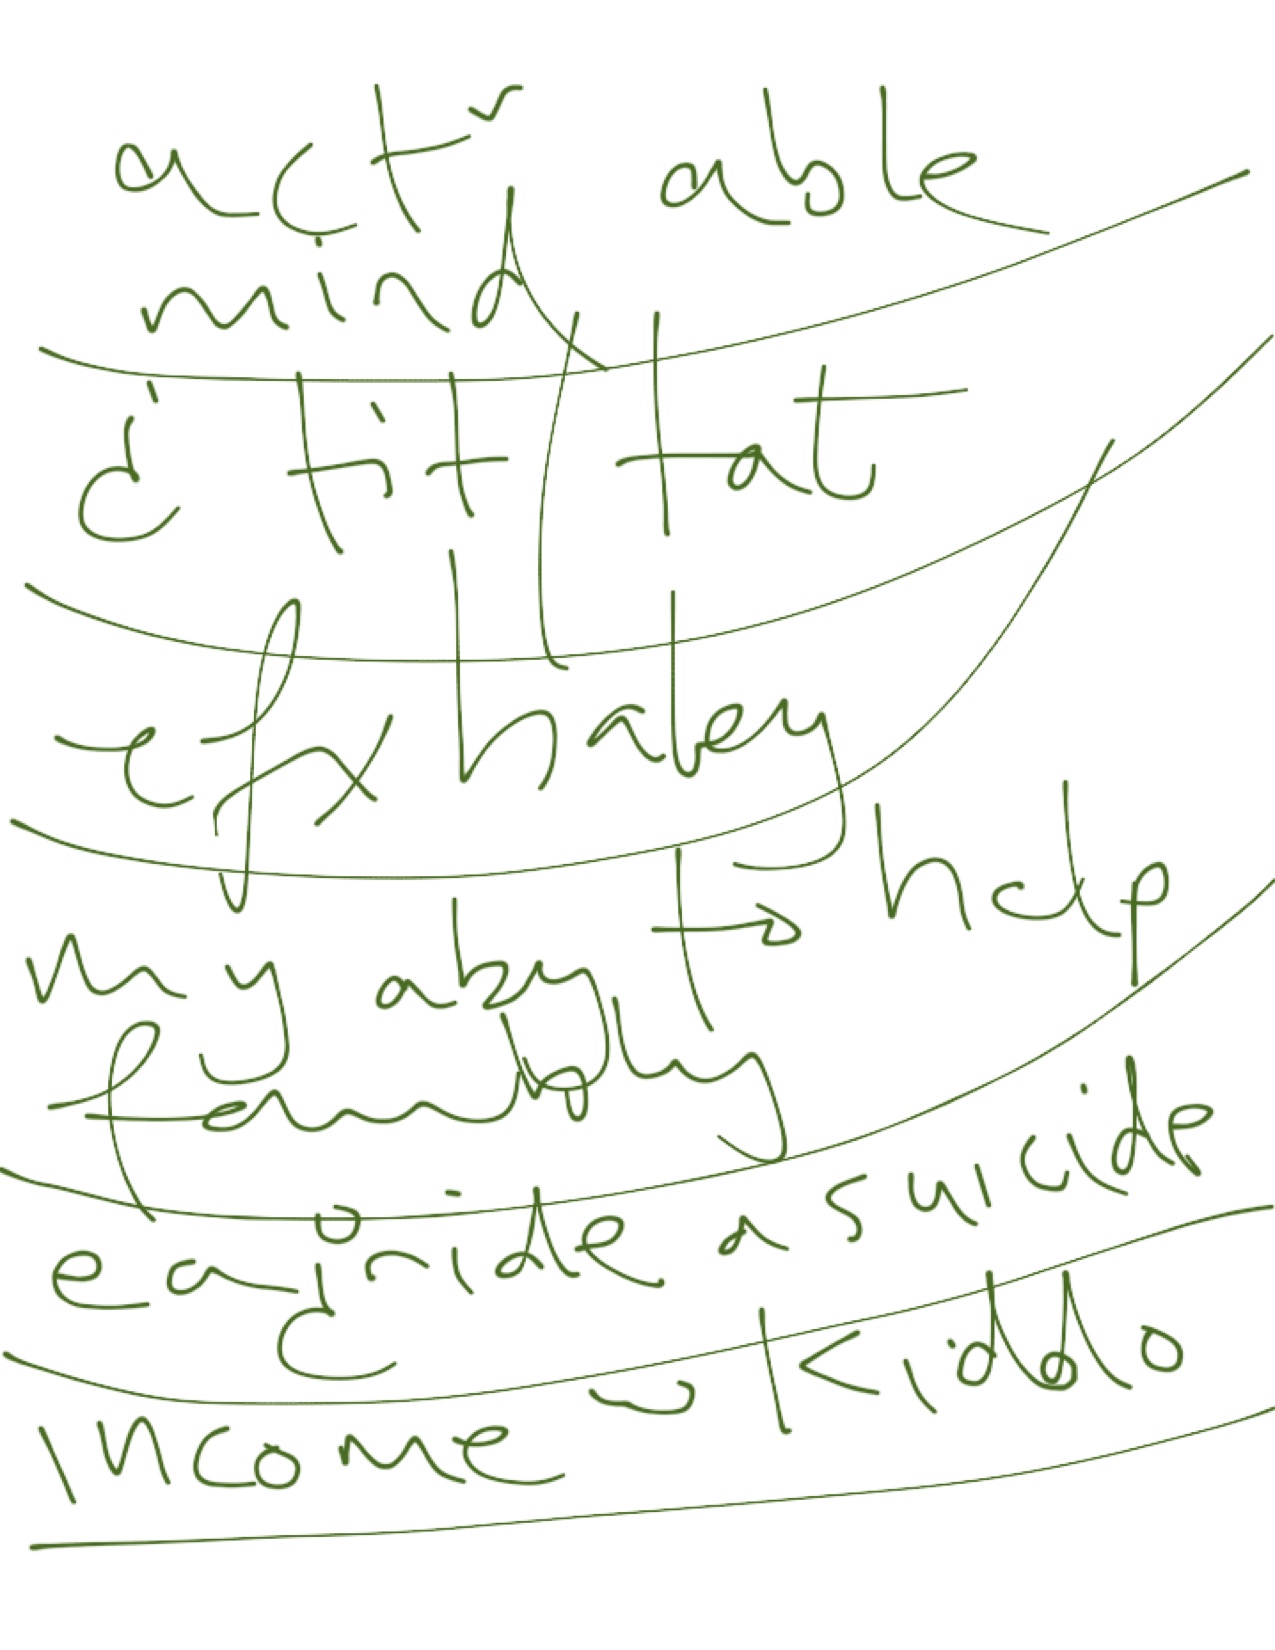 act able
mind
tit tat
efx haley
my aby to help
family
ride a suicide
income kiddo